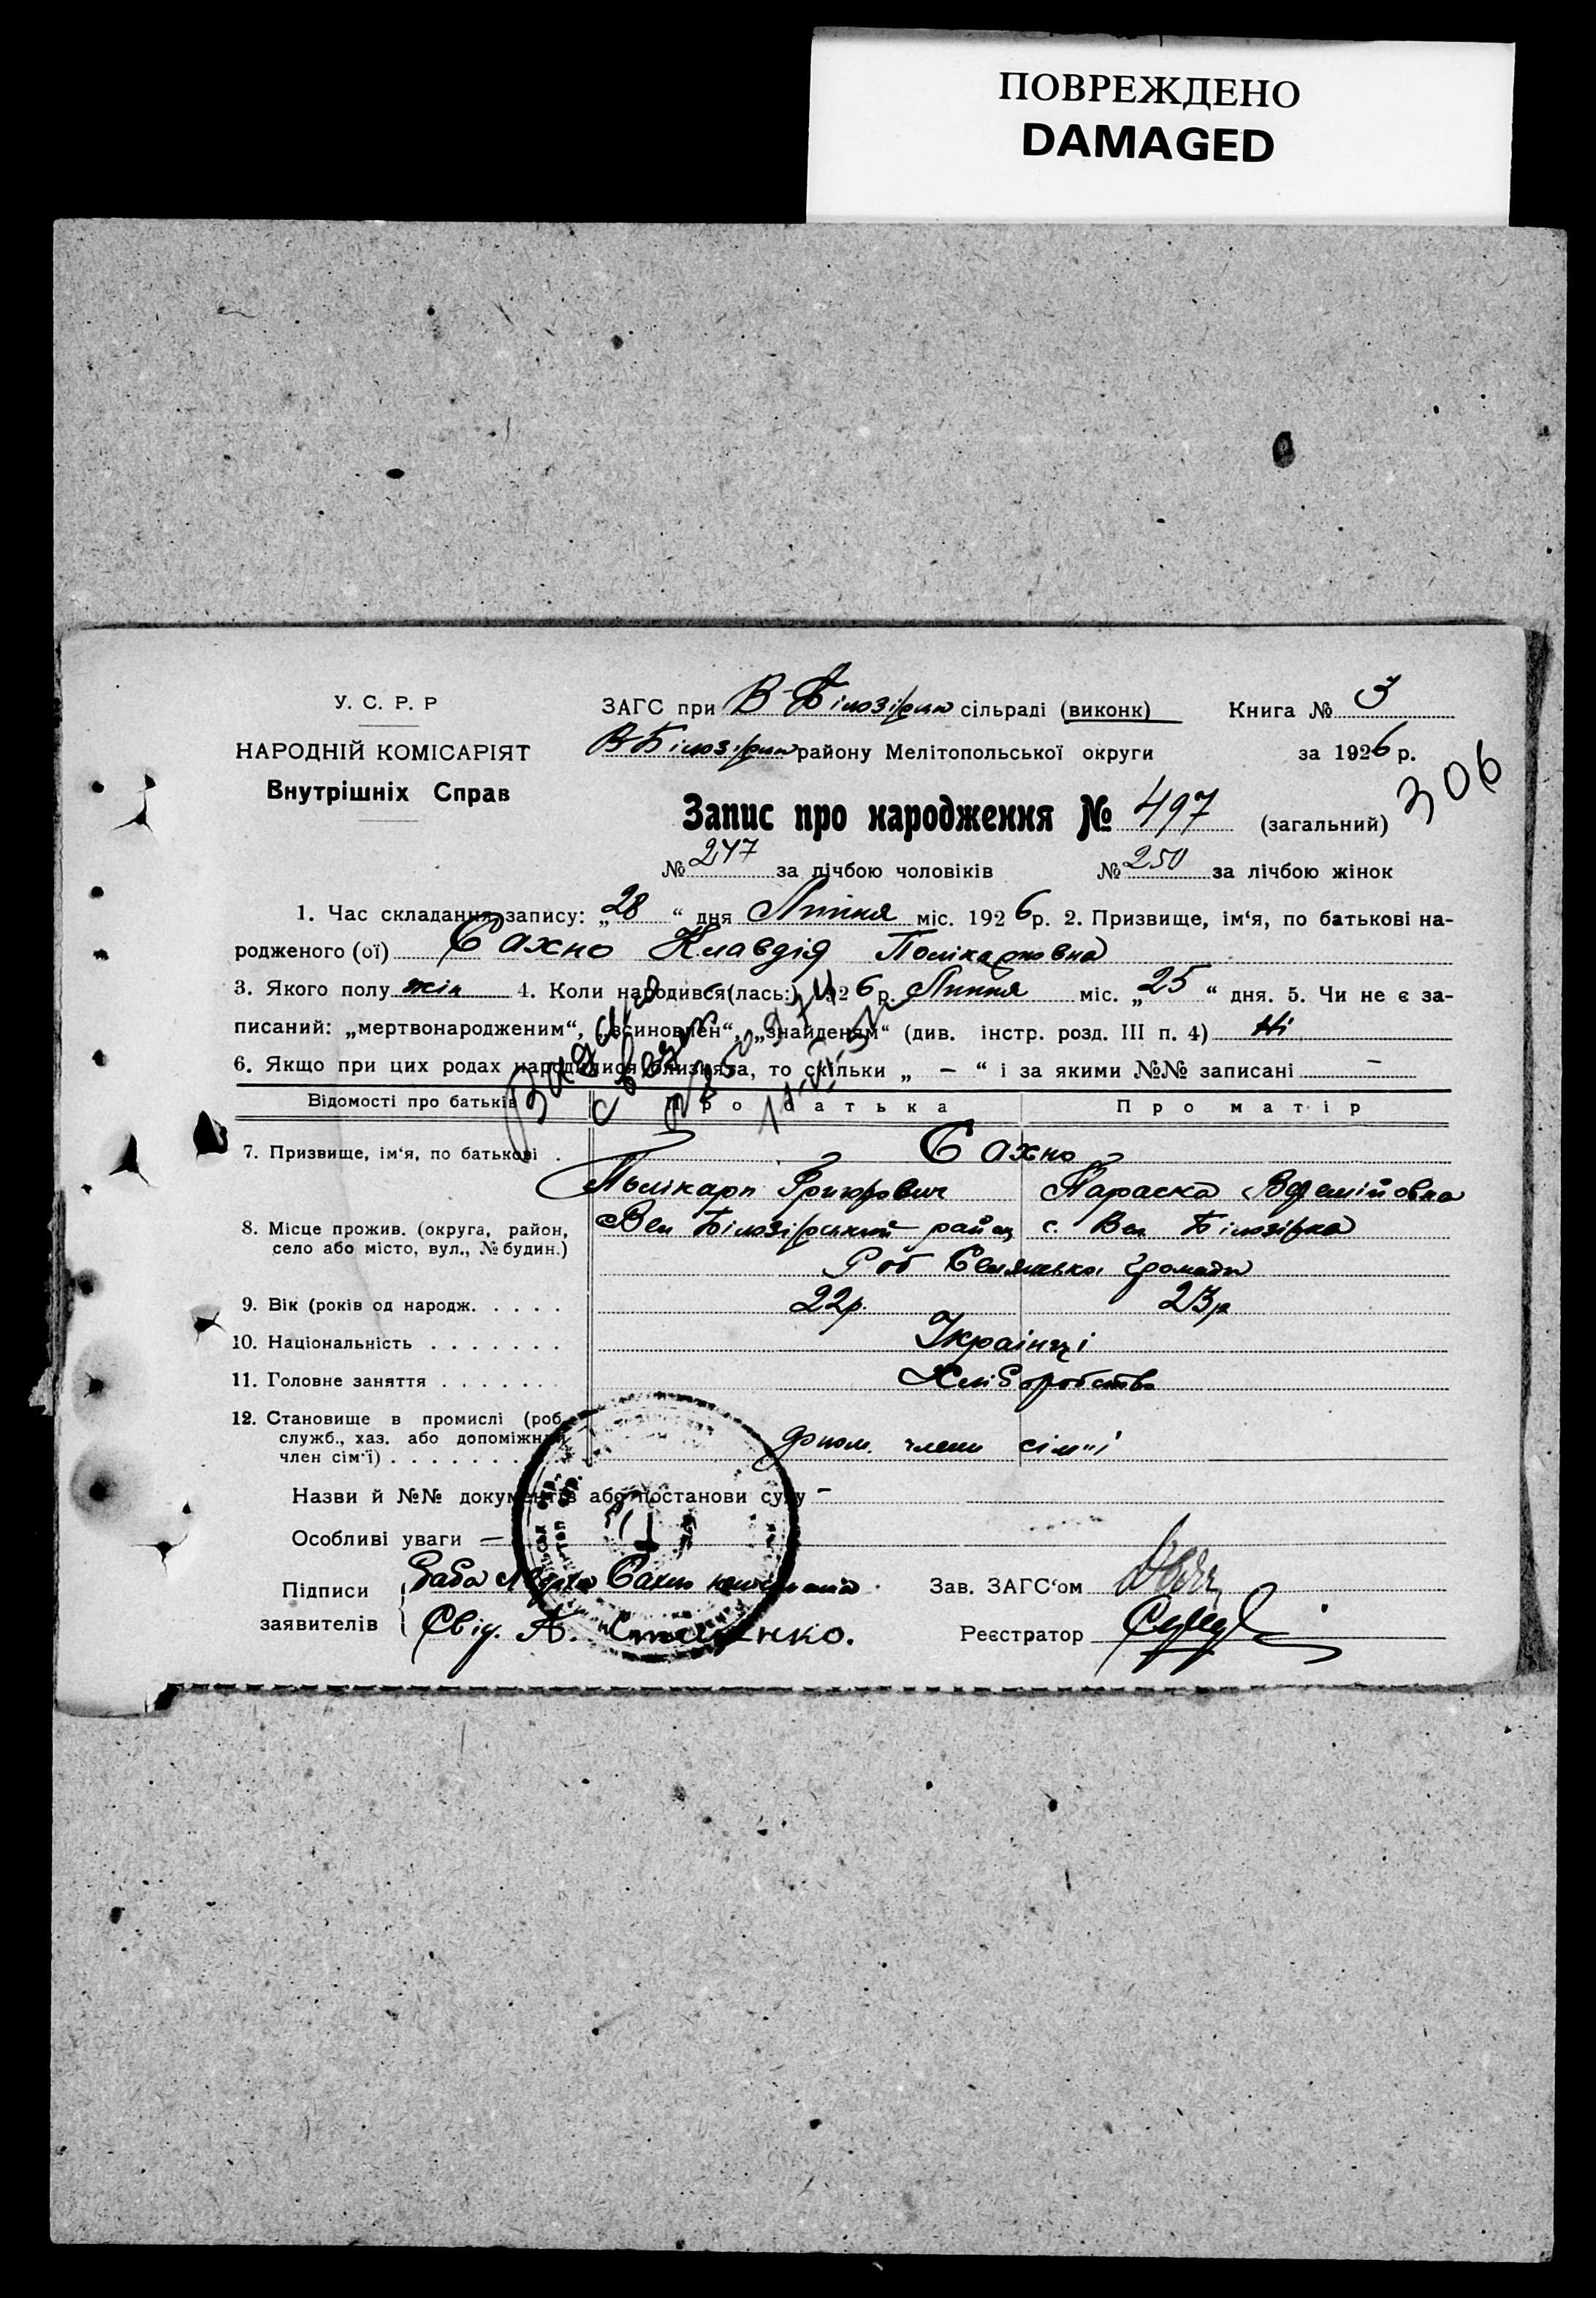 ПОВРЕЖДЕНО
DAMAGED
У. С. Р. Р
НАРОДНІЙ КОМІСАРІЯТ
Внутрішніх Справ
ЗАГС при В-Білозірск сільраді (виконк) Книга № 3
В Білозірск району Мелітопольської округи за 1926 р.
306
Запис про народження № 497 (загальний)
№ 247 за лічбою чоловіків № 250 за лічбою жінок
1. Час складання запису: „28“ дня Липня міс. 1926 р. 2. Призвище, ім‘я, по батькові на-
родженого (ої) Сахно Клавдія Полікарповна
3. Якого полу жін 4. Коли народився (лась:) 1926 р. Липня міс. „25“ дня. 5. Чи не є за-
писаний: „мертвонародженим“, „всиновлен“, „знайденям“ (див. інстр. розд. III п. 4) Ні
6. Якщо при цих родах народилися близнята, то скільки „ – “ і за якими №№ записані –
Відомості про батьків Про батька Про матір
7. Призвище, ім‘я, по батькові . Сахно
Полікарп Григорович Параска
8. Місце прожив. (округа, район, село або місто, вул., № будин.) Вел Білозірський район с. Вел Білозірка
Роб Селянська громада
9. Вік (років од народж. . . . . 22р. 23р
10. Національність . . . . . . . Українці
11. Головне заняття . . . . . . . Хліборобство
12. Становище в промислі (роб.
служб., хаз. або допоміжний
член сім‘ї) . . . . . . . . члени сім'ї
Назви й №№ документів або постанови суду –
Особливі уваги –
Підписи Баба Сахно
заявителів Свід. А.
Зав. ЗАГС‘ом
Реєстратор